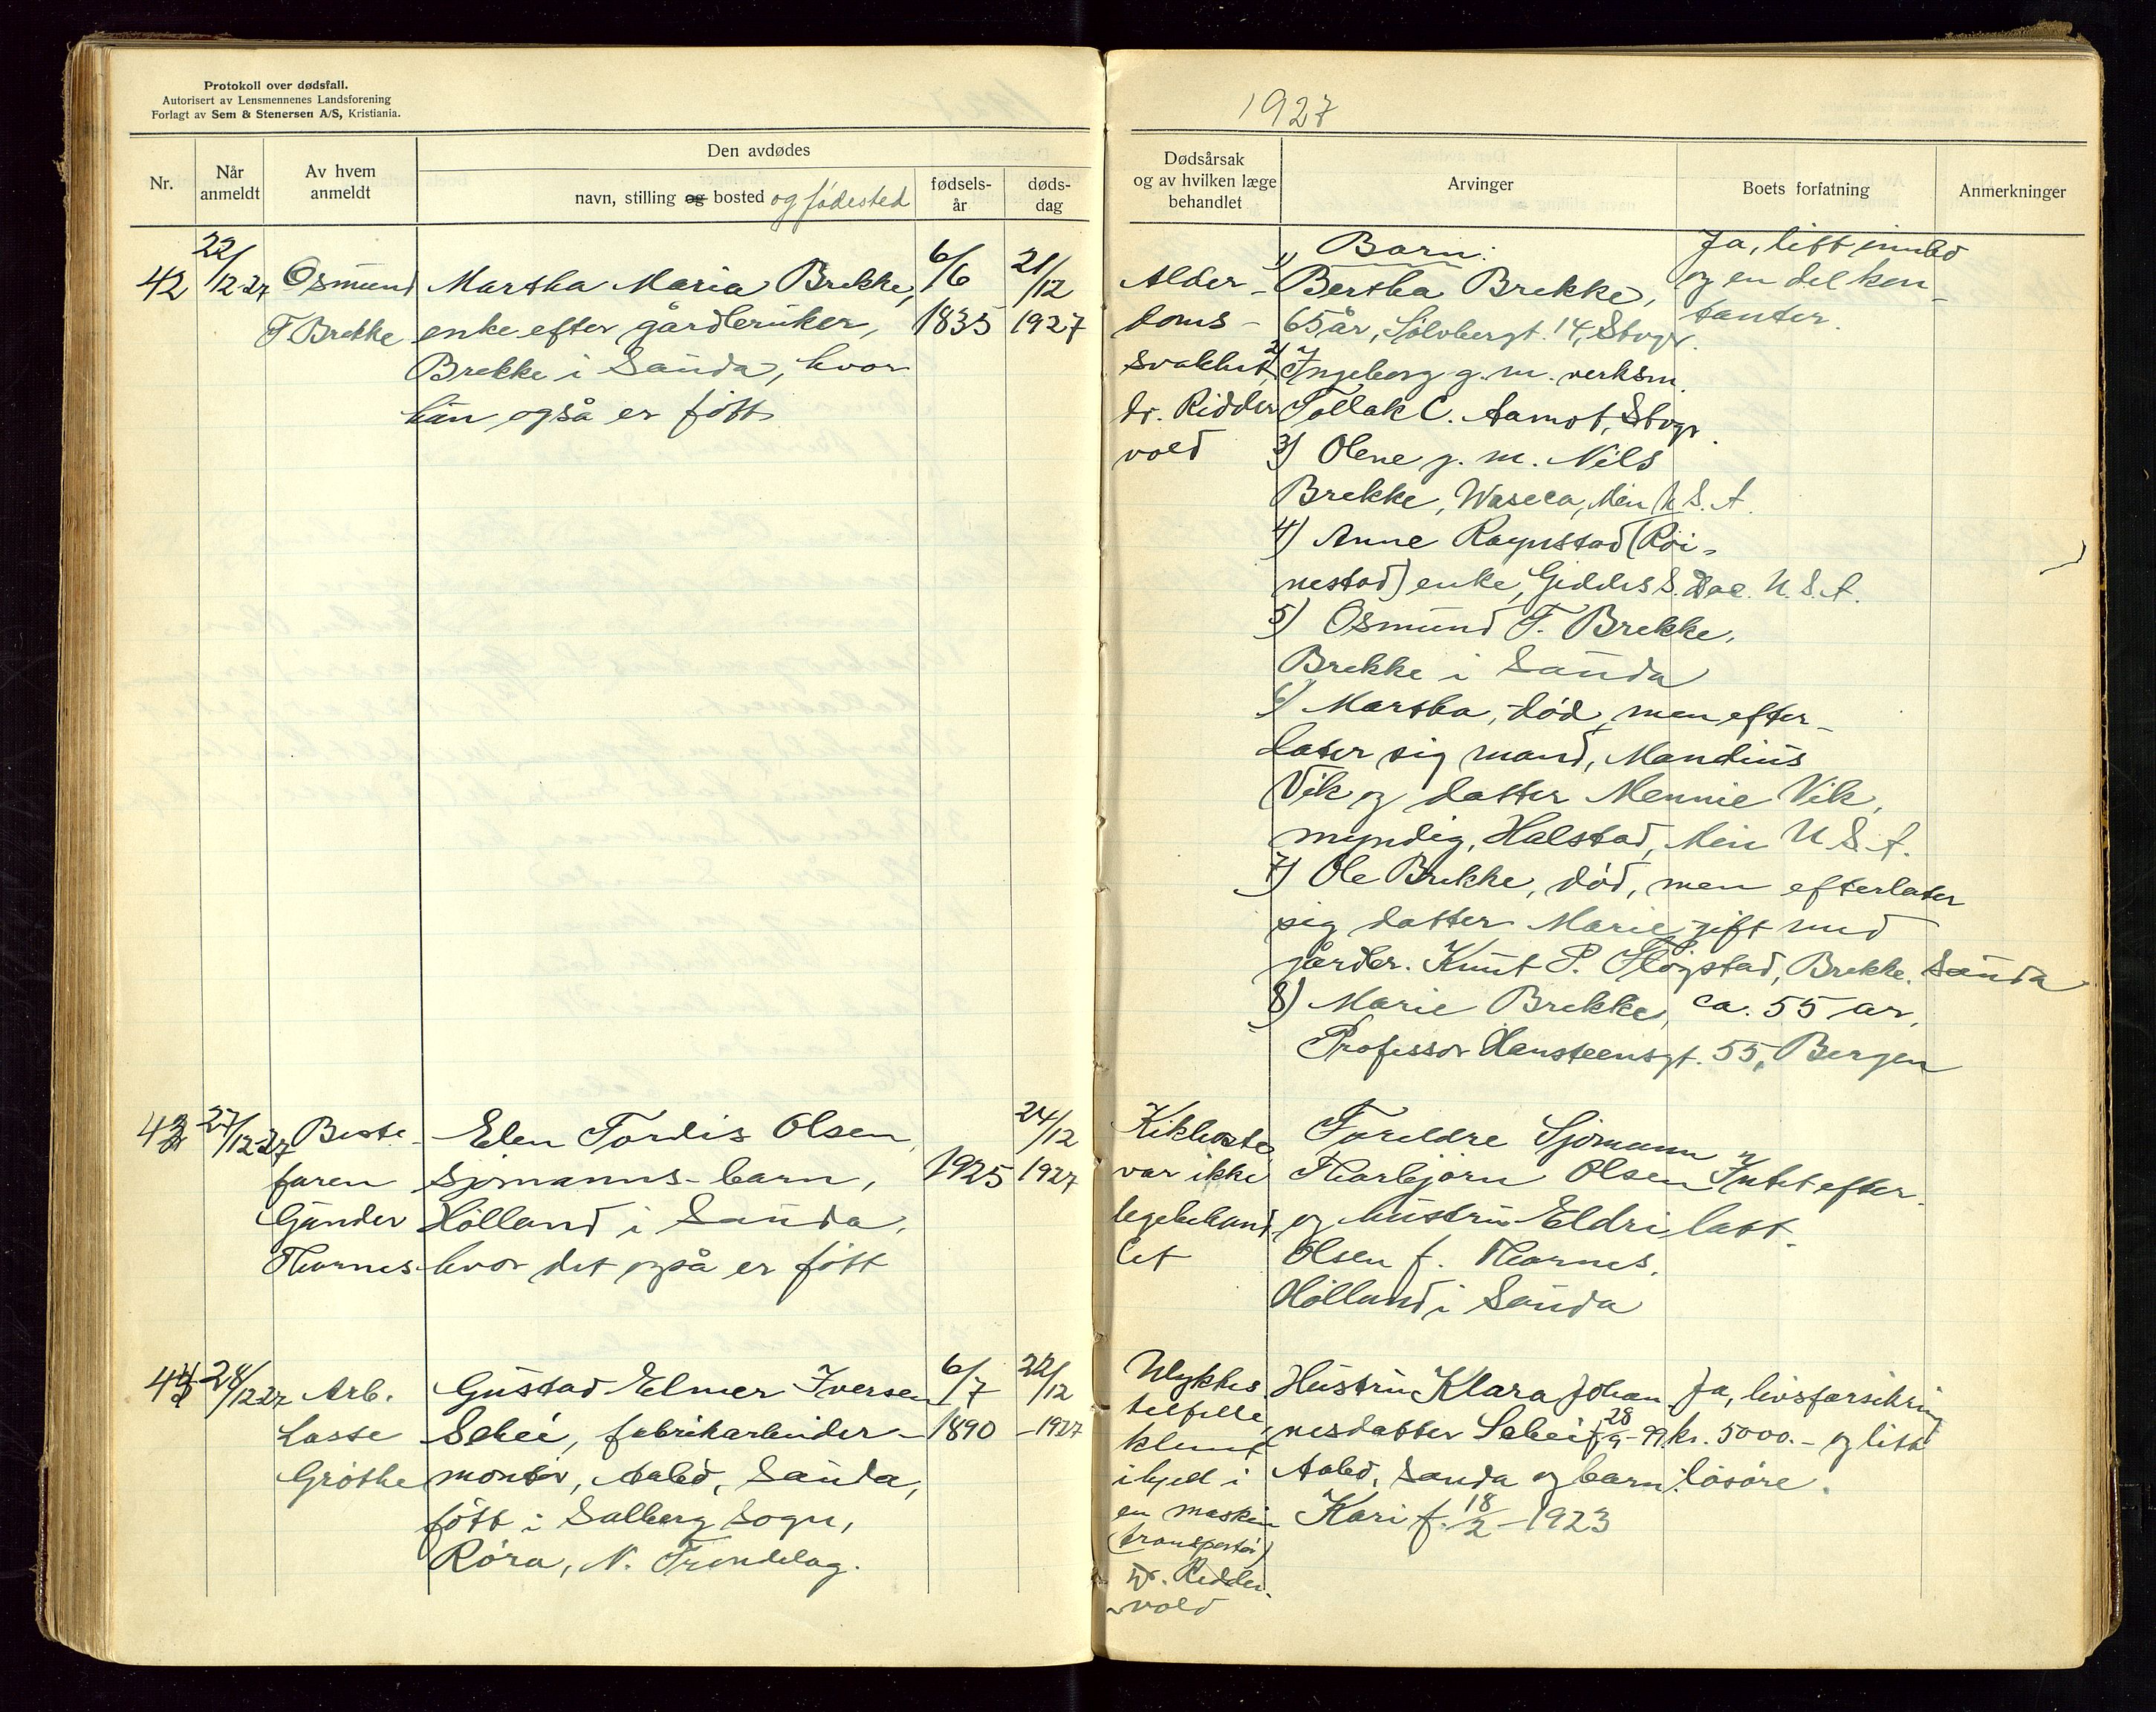 Protokoll over dødsfall.
Autorisert av Lensmennenes Landsforening
Forlagt av Sem & Stenersen A/S, Kristiania.
Nr.
Når anmeldt
Av hvem anmeldt
Den avdødes
navn, stilling og bosted og fødested
fødsels-år
døds-dag
42
22/12-27
Osmund
T Brekke
Martha Maria Brekke,
enke efter gårdbruker,
Brekke i Sauda, hvor
hun også er født
6/6
1835
21/12
1927
43
27/12-27
Beste-
faren
Gunder
Thornes
Elen Tordis Olsen,
sjømanns-barn,
Hölland i Sauda,
hvor det også er født
1925
24/12
1927
44
28/12-27
Arb.
Lasse
Grøthe
Gustad Elmer Iversen
Sebei, fabrikarbeider-
montör, Aabø, Sauda,
født i Salberg sogn,
Röra, N. Trøndelag.
6/7
1890
22/12
-1927
1927
Dødsårsak
og av hvilken læge
behandlet
Arvinger
Boets forfatning
Anmerkninger
Alder-
doms-
svakhet,
dr. Ridder
vold
Barn:
1) Bertha Brekke,
65 år, Sølvbergt. 14, Stvgr.
2) Ingeborg g. m. verksm.
Tollak C. Aamot, Stvgr.
3) Olene g. m. Nils
Brekke, Waseca, Min U. S. A.
4) Anne Ragnstad (Röi-
nestad) enke, Giddes S. Dac. U. S. A.
5) Osmund T. Brekke,
Brekke i Sauda
6) Martha, död, men efter-
later sig mand, Mandius
Vik og datter Mennie Vik,
myndig, Halstad, Min U S A.
7) Ole Brekke, død, men efterlater
sig datter Marie gift med
gårdbr. Knut P. Fløgstad, Brekke. Sauda
8) Marie Brekke, ca. 55 år,
Professor Hansteensgt. 55, Bergen
Ja, litt innbo
og en del kon-
tanter.
Kikhoste,
var ikke
legebehand
let
Foreldre Sjømann
Thorbjørn Olsen
og hustru Eldri
Olsen f. Thornes,
Hölland i Sauda
Intet efter-
latt.
Ulykkes
tilfelle,
klemt
ihjel i
en maskin
(transportör)
Dr. Ridder-
vold
Hustru Klara Johan-
nesdatter Sebei f. 28/9-99
Aabø, Sauda og barn:
Kari f. 18/2-1923
Ja, livsforsikring
kr. 5000.- og litt
løsøre.